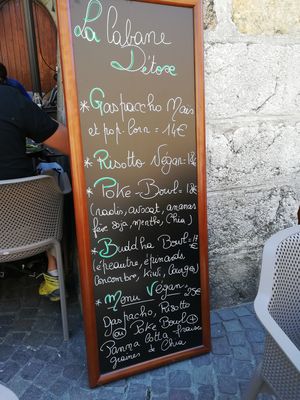 La Cabane
Détox
* Gaspaccho Maïs
et pop-corn = 14€
* Risotto Vegan =
* Poke-Bowl =
(radis, avocat, ananas
fève soja, menthe, Chia)
* Buddha Bowl =
(épeautre, épinards
Concombre, kiwi,
* Menu Vegan =
Gaspacho, Risotto
ou Poke Bowl
Panna Cotta
graines de Chia